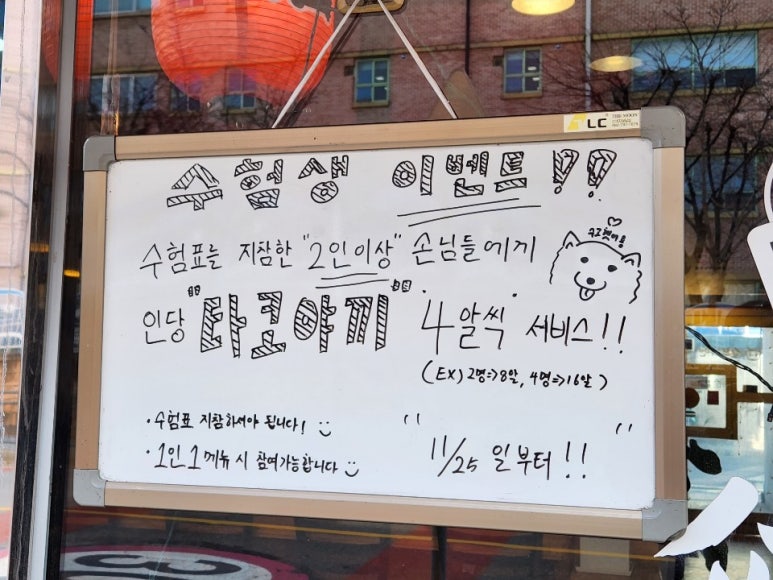 LC
수험생 이벤트!!
수험표를 지참한 "2인이상" 손님들에게
인당 "타코야끼" 4알씩 서비스!!
(EX) 2명=>8알, 4명=>16알)
· 수험표 지참하셔야 됩니다!
· 1인 1메뉴 시 참여가능합니다
" 11/25 일부터!! "